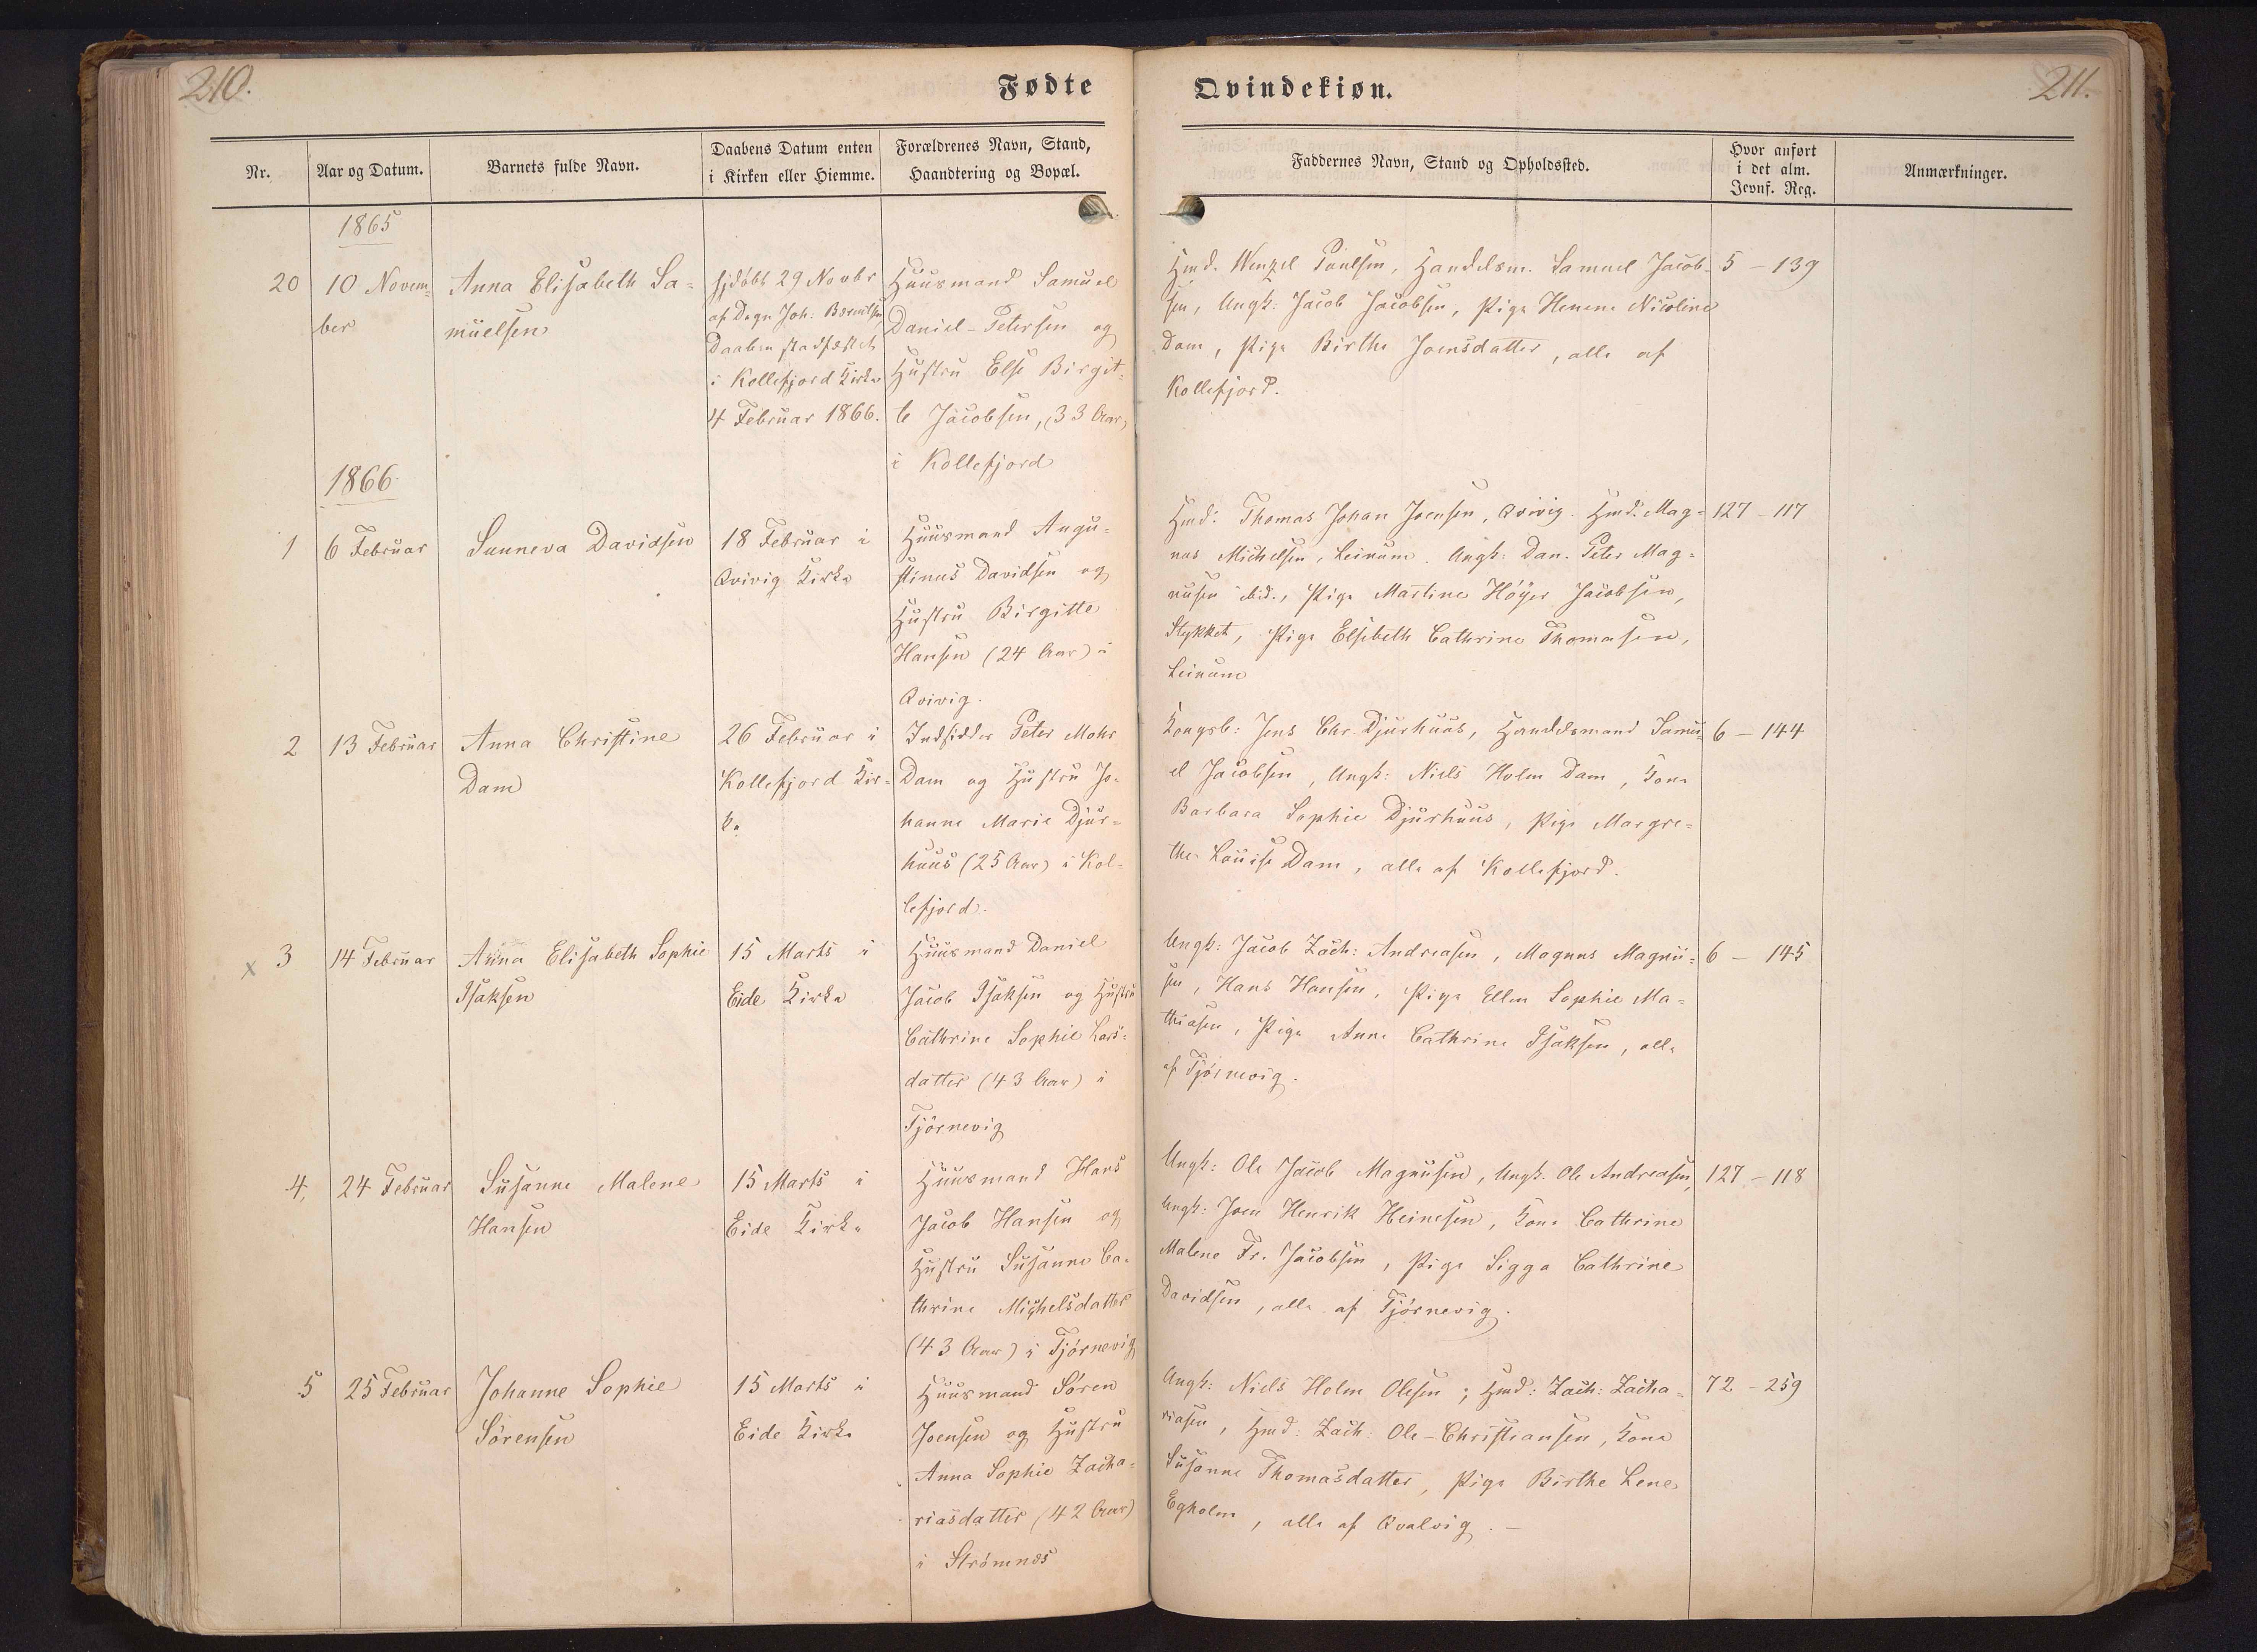 210.
Fødte
Nr.
Aar og Datum.
Barnets fulde Navn.
Daabens Datum enten
i Kirken eller Hiemme.
Forældrenes Navn, Stand,
Haandtering og Bopæl.
1865
20
10 Novem-
ber
Anna Elisabeth Sa-
muelsen
hjdøbt 29 Novbr
af Degn Joh:
Daaben stadfæstet
i Kollefjord Kirke
4 Februar 1866.
Huusmand Samuel
Daniel-Petersen og
Hustru Else Birgit-
te Jacobsen, (33 Aar)
i Kollefjord
1866
1
6 Februar
Sunneva Davidsen
18 Februar i
Qvivig Kirke
Huusmand Augu-
stinus Davidsen og
Hustru Birgitte
Hansen (24 Aar) i
Qvivig.
2
13 Februar
Anna Christine
Dam
26 Februar i
Kollefjord Kir-
ke
Indsidder Peter Mohr
Dam og Hustru Jo-
hanne Marie Djur-
huus (25 Aar) i Kol-
lefjord.
x 3
14 Februar
Anna Elisabeth Sophie
Isaksen
15 Marts i
Eide Kirke
Huusmand Daniel
Jacob Isaksen og Hustru
Cathrine Sophie Lars-
datter (43 Aar) i
Tjörnevig
4,
24 Februar
Susanne Malene
Hansen
15 Marts i
Eide Kirke
Huusmand Hans
Jacob Hansen og
Hustru Susanne Ca-
thrine Michelsdatter
(43 Aar) i Tjörnevig
5
25 Februar
Johanne Sophie
Sörensen
15 Marts i
Eide Kirke
Huusmand Sören
Joensen og Hustru
Anna Sophie Zacha-
riasdatter (42 Aar)
i Strömnæs
Qvindekiøn.
211.
Faddernes Navn, Stand og Opholdssted.
Hvor anført
i det alm.
Jevnf. Reg.
Anmærkninger.
Hmd. Wenzel Poulsen, Handelsm. Samuel Jacob-
sen, Ungk: Jacob Jacobsen, Pige Nicoline
Dam, Pige Birthe Joensdatter, alle af
Kollefjord.
5 - 139
Hmd: Thomas Johan Joensen, Qvivig. Hmd: Mag-
nus Michelsen, Leinum. Ungk: Dan. Peter Mag-
nusen ibid., Pige Martine Höyer Jacobsen,
Stykket, Pige Elsebeth Cathrine Thomasen,
Leinum
127 - 117
Kongsb: Jens Chr. Djurhuus, Handelsmand Samu-
el Jacobsen, Ungk: Niels Holm Dam, Kone
Barbara Sophie Djurhuus, Pige Margre-
the Louise Dam, alle af Kollefjord.
6 - 144
Ungk: Jacob Zach: Andreasen, Magnus Magnu-
sen, Hans Hansen, Pige Ellen Sophie Ma-
thiasen, Pige Anne Cathrine Isaksen, alle
af Tjörnevig.
6 - 145
Ungk: Ole Jacob Magnusen, Ungk. Ole Andreasen,
Ungk: Joen Henrik Heinesen, Kone Cathrine
Malene Fr. Jacobsen, Pige Sigga Cathrine
Davidsen, alle af Tjörnevig.
127 - 118
Ungk: Niels Holm Olesen; Hmd: Zach: Zacha-
riasen, Hmd: Zach: Ole-Christiansen, Kone
Susanne Thomasdatter, Pige Birthe Lene
Egholm, alle af Qvalvig. -
72 - 259